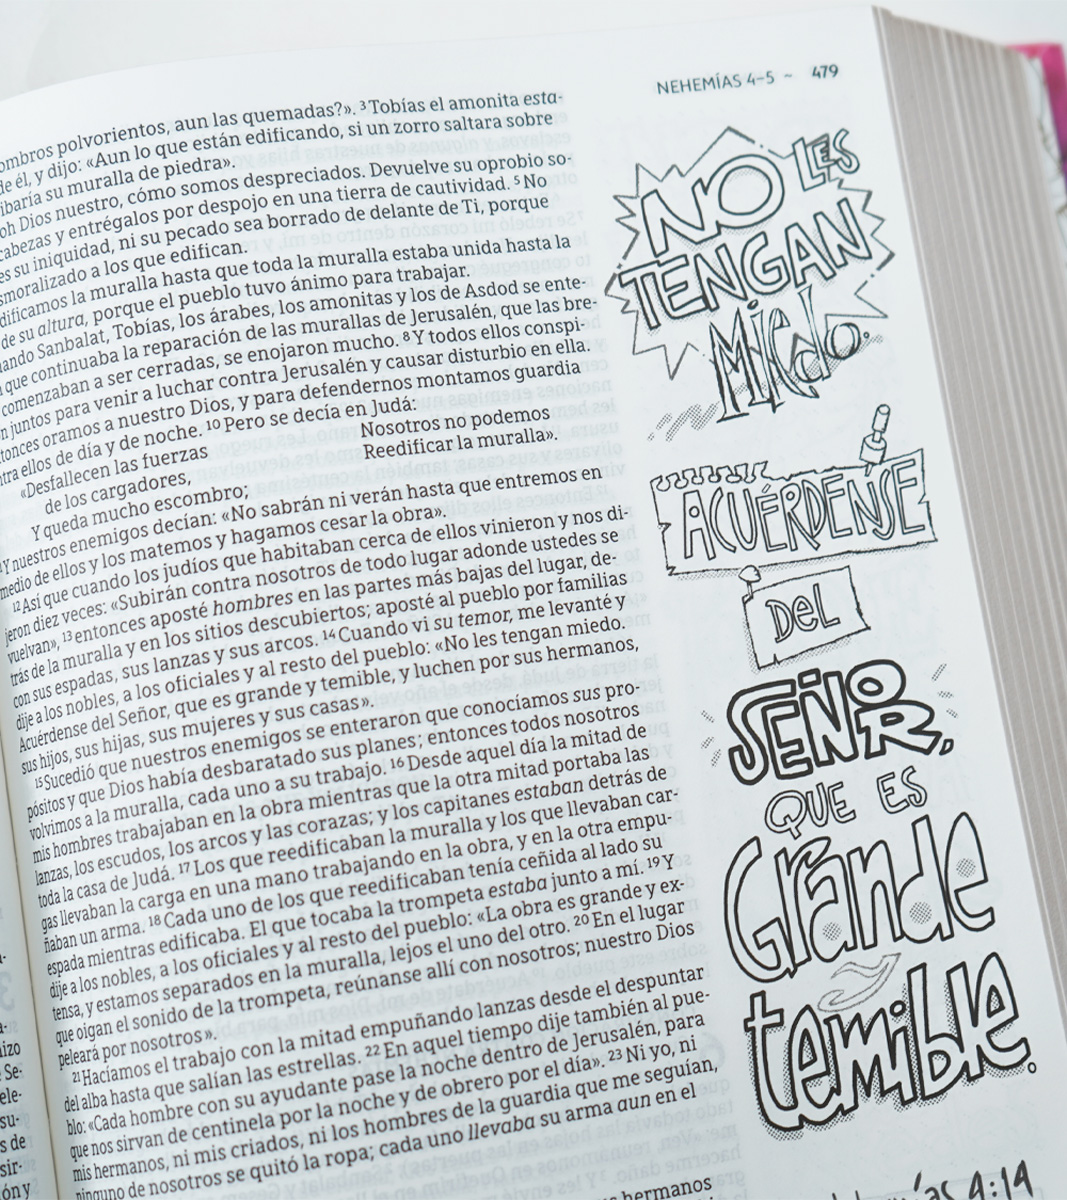 NEHEMÍAS 4-5 ~ 479
polvorientos, aun las quemadas?». 3Tobías el amonita esta-
de él, y dijo: «Aun lo que están edificando, si un zorro saltara sobre
su muralla de piedra».
oh Dios nuestro, cómo somos despreciados. Devuelve su oprobio so-
cabezas y entrégalos por despojo en una tierra de cautividad. 5No
su iniquidad, ni su pecado sea borrado de delante de Ti, porque
a los que edifican.
la muralla hasta que toda la muralla estaba unida hasta la
de su altura, porque el pueblo tuvo ánimo para trabajar.
Sanbalat, Tobías, los árabes, los amonitas y los de Asdod se ente-
que continuaba la reparación de las murallas de Jerusalén, que las bre-
comenzaban a ser cerradas, se enojaron mucho. 8Y todos ellos conspi-
juntos para venir a luchar contra Jerusalén y causar disturbio en ella.
oramos a nuestro Dios, y para defendernos montamos guardia
ellos de día y de noche. 10Pero se decía en Judá:
«Desfallecen las fuerzas
de los cargadores,
Y queda mucho escombro;
Nosotros no podemos
Reedificar la muralla».
Y nuestros enemigos decían: «No sabrán ni verán hasta que entremos en
medio de ellos y los matemos y hagamos cesar la obra».
12Así que cuando los judíos que habitaban cerca de ellos vinieron y nos di-
jeron diez veces: «Subirán contra nosotros de todo lugar adonde ustedes se
vuelvan», 13entonces aposté hombres en las partes más bajas del lugar, de-
trás de la muralla y en los sitios descubiertos; aposté al pueblo por familias
con sus espadas, sus lanzas y sus arcos. 14Cuando vi su temor, me levanté y
dije a los nobles, a los oficiales y al resto del pueblo: «No les tengan miedo.
Acuérdense del Señor, que es grande y temible, y luchen por sus hermanos,
sus hijos, sus hijas, sus mujeres y sus casas».
15Sucedió que nuestros enemigos se enteraron que conocíamos sus pro-
pósitos y que Dios había desbaratado sus planes; entonces todos nosotros
volvimos a la muralla, cada uno a su trabajo. 16Desde aquel día la mitad de
mis hombres trabajaban en la obra mientras que la otra mitad portaba las
lanzas, los escudos, los arcos y las corazas; y los capitanes estaban detrás de
toda la casa de Judá. 17Los que reedificaban la muralla y los que llevaban car-
gas llevaban la carga en una mano trabajando en la obra, y en la otra empu-
ñaban un arma. 18Cada uno de los que reedificaban tenía ceñida al lado su
espada mientras edificaba. El que tocaba la trompeta estaba junto a mí. 19Y
dije a los nobles, a los oficiales y al resto del pueblo: «La obra es grande y ex-
tensa, y estamos separados en la muralla, lejos el uno del otro. 20En el lugar
que oigan el sonido de la trompeta, reúnanse allí con nosotros; nuestro Dios
peleará por nosotros».
21Hacíamos el trabajo con la mitad empuñando lanzas desde el despuntar
del alba hasta que salían las estrellas. 22En aquel tiempo dije también al pue-
blo: «Cada hombre con su ayudante pase la noche dentro de Jerusalén, para
que nos sirvan de centinela por la noche y de obrero por el día». 23Ni yo, ni
mis hermanos, ni mis criados, ni los hombres de la guardia que me seguían,
ninguno de nosotros se quitó la ropa; cada uno llevaba su arma aun en el
hermanos
NO LES
TENGAN
MIEDO.
ACUÉRDENSE
DEL
SEÑOR,
QUE ES
Grande
temible.
4:14